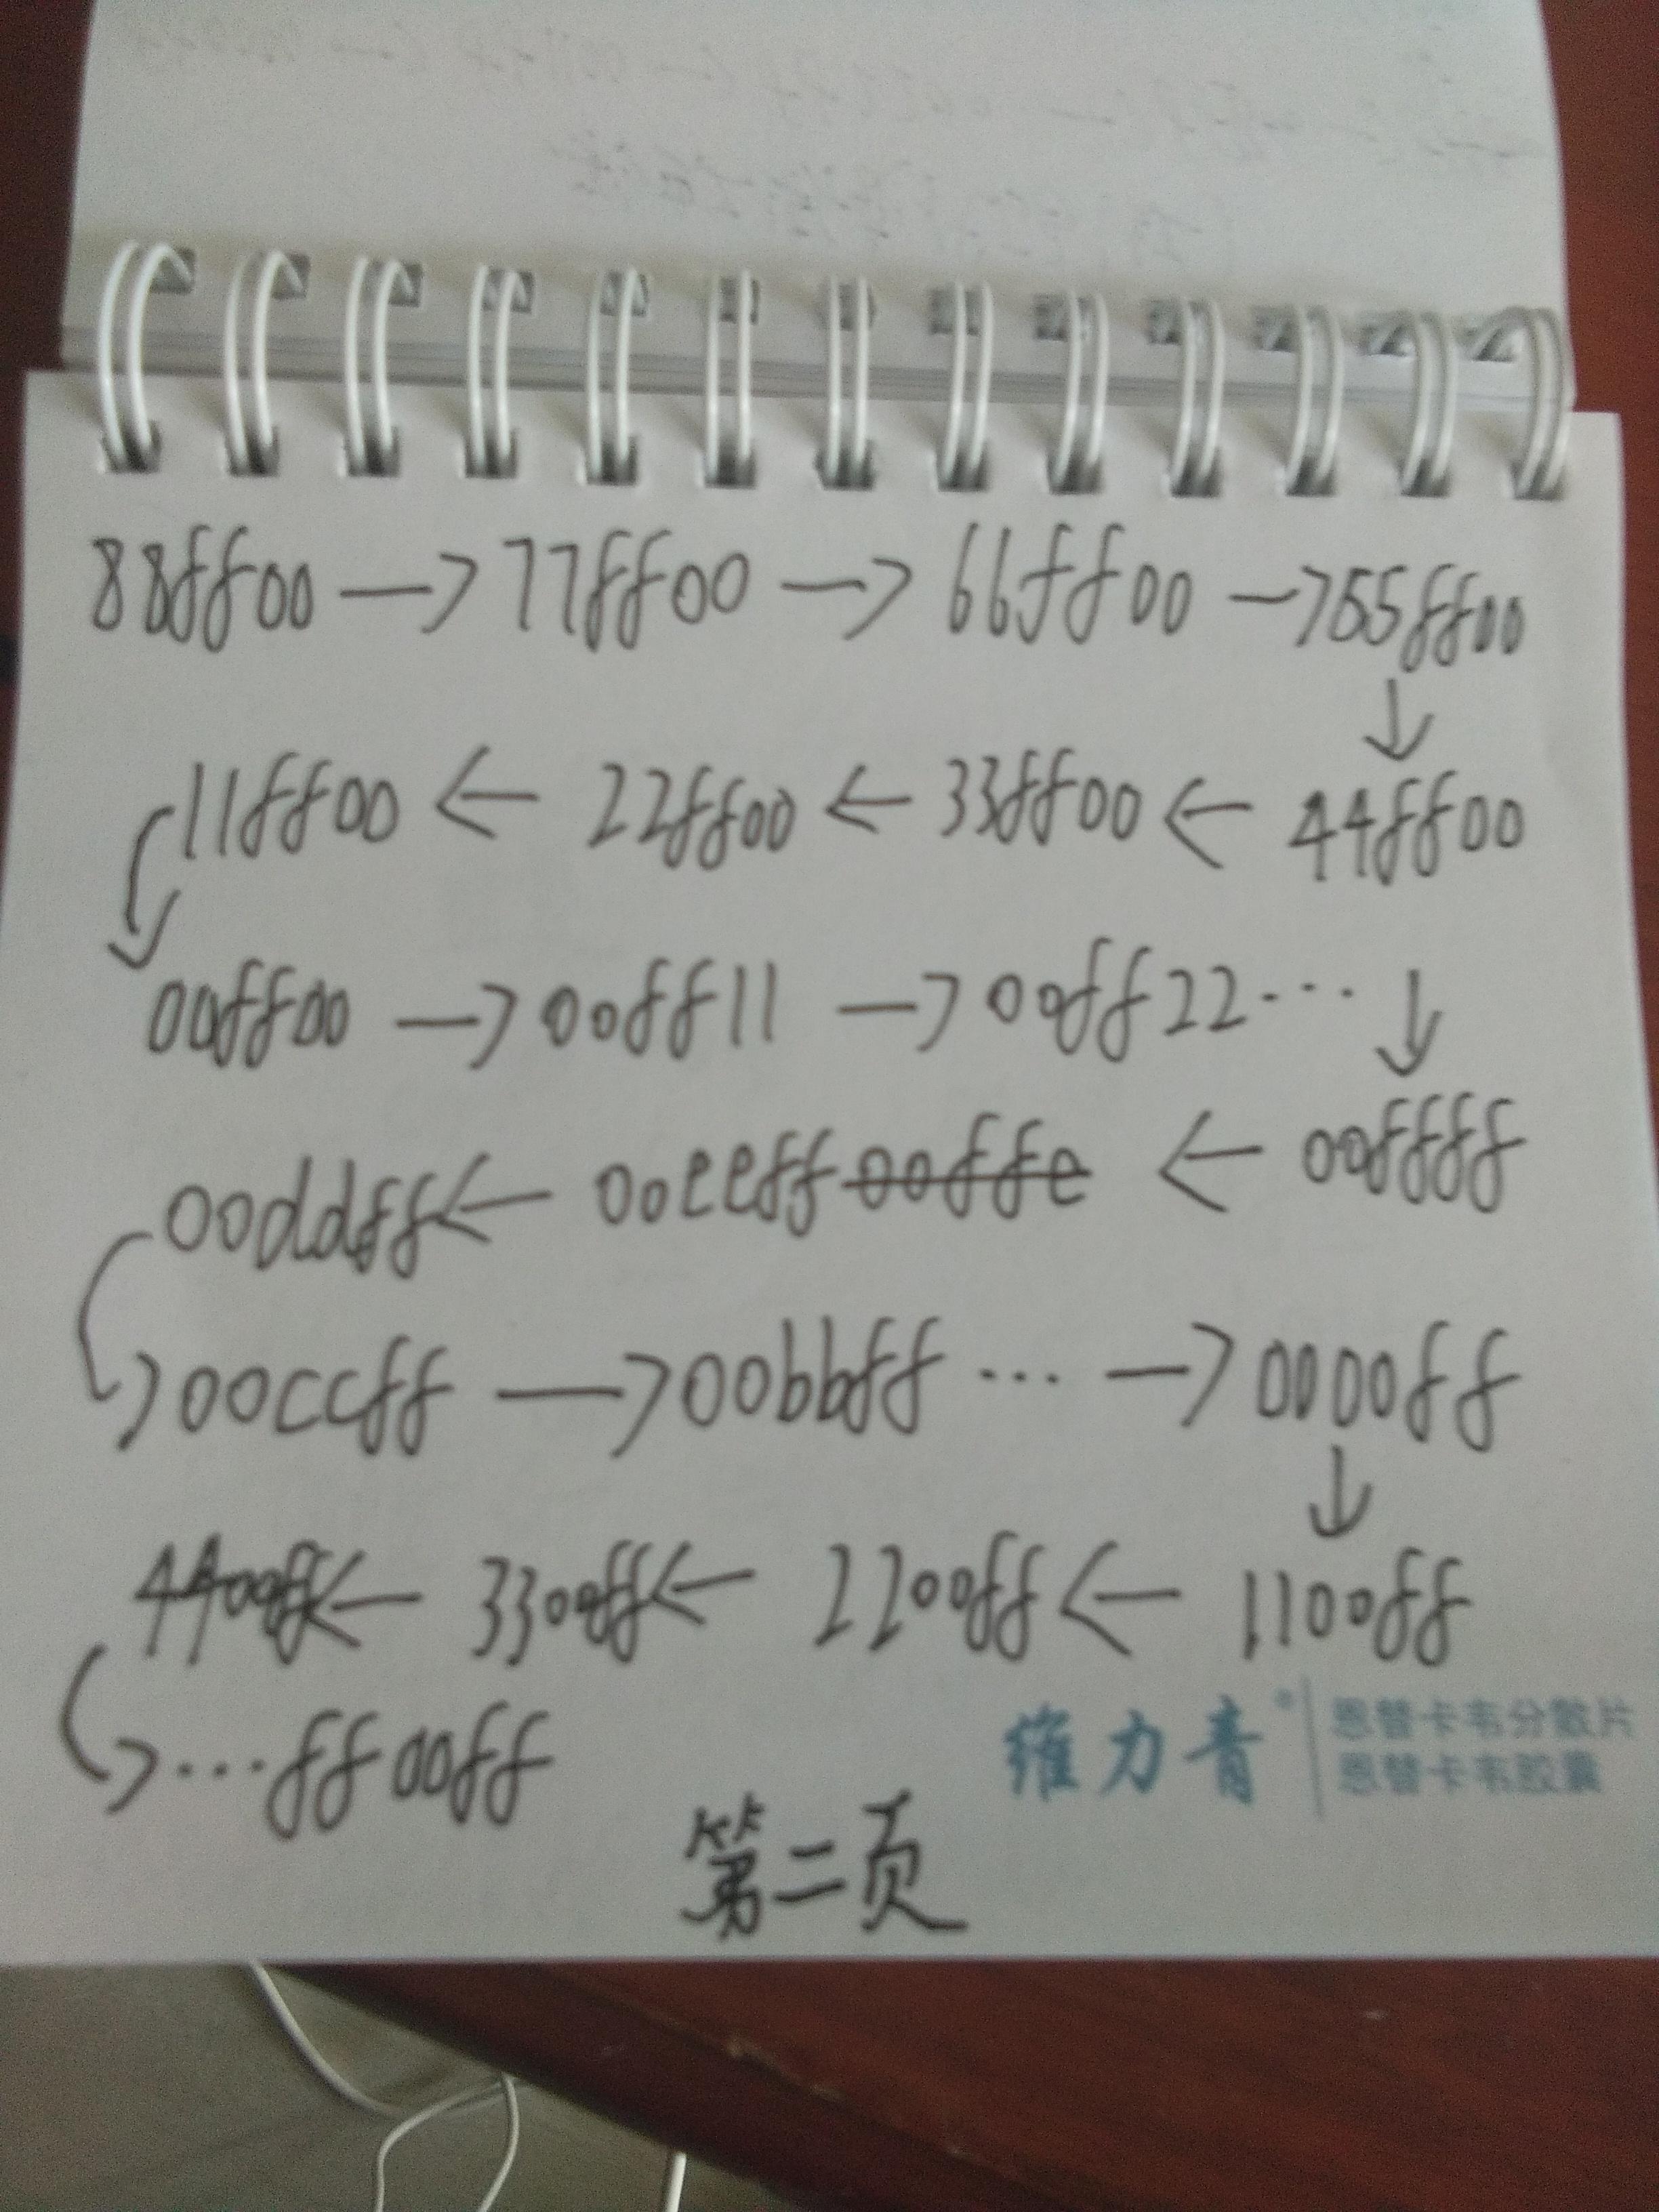 88ff00 → 77ff00 → 66ff00 → 55ff00
↓
11ff00 ← 22ff00 ← 33ff00 ← 44ff00
00ff00 → 00ff11 → 00ff22 ... ↓
00ddff ← 00eeff 00ffe ← 00ffff
→ 00ccff → 00bbff ... → 0000ff
↓
4400ff ← 3300ff ← 2200ff ← 1100ff
→ ... ff00ff
维力青® 恩替卡韦分散片
恩替卡韦胶囊
第二页